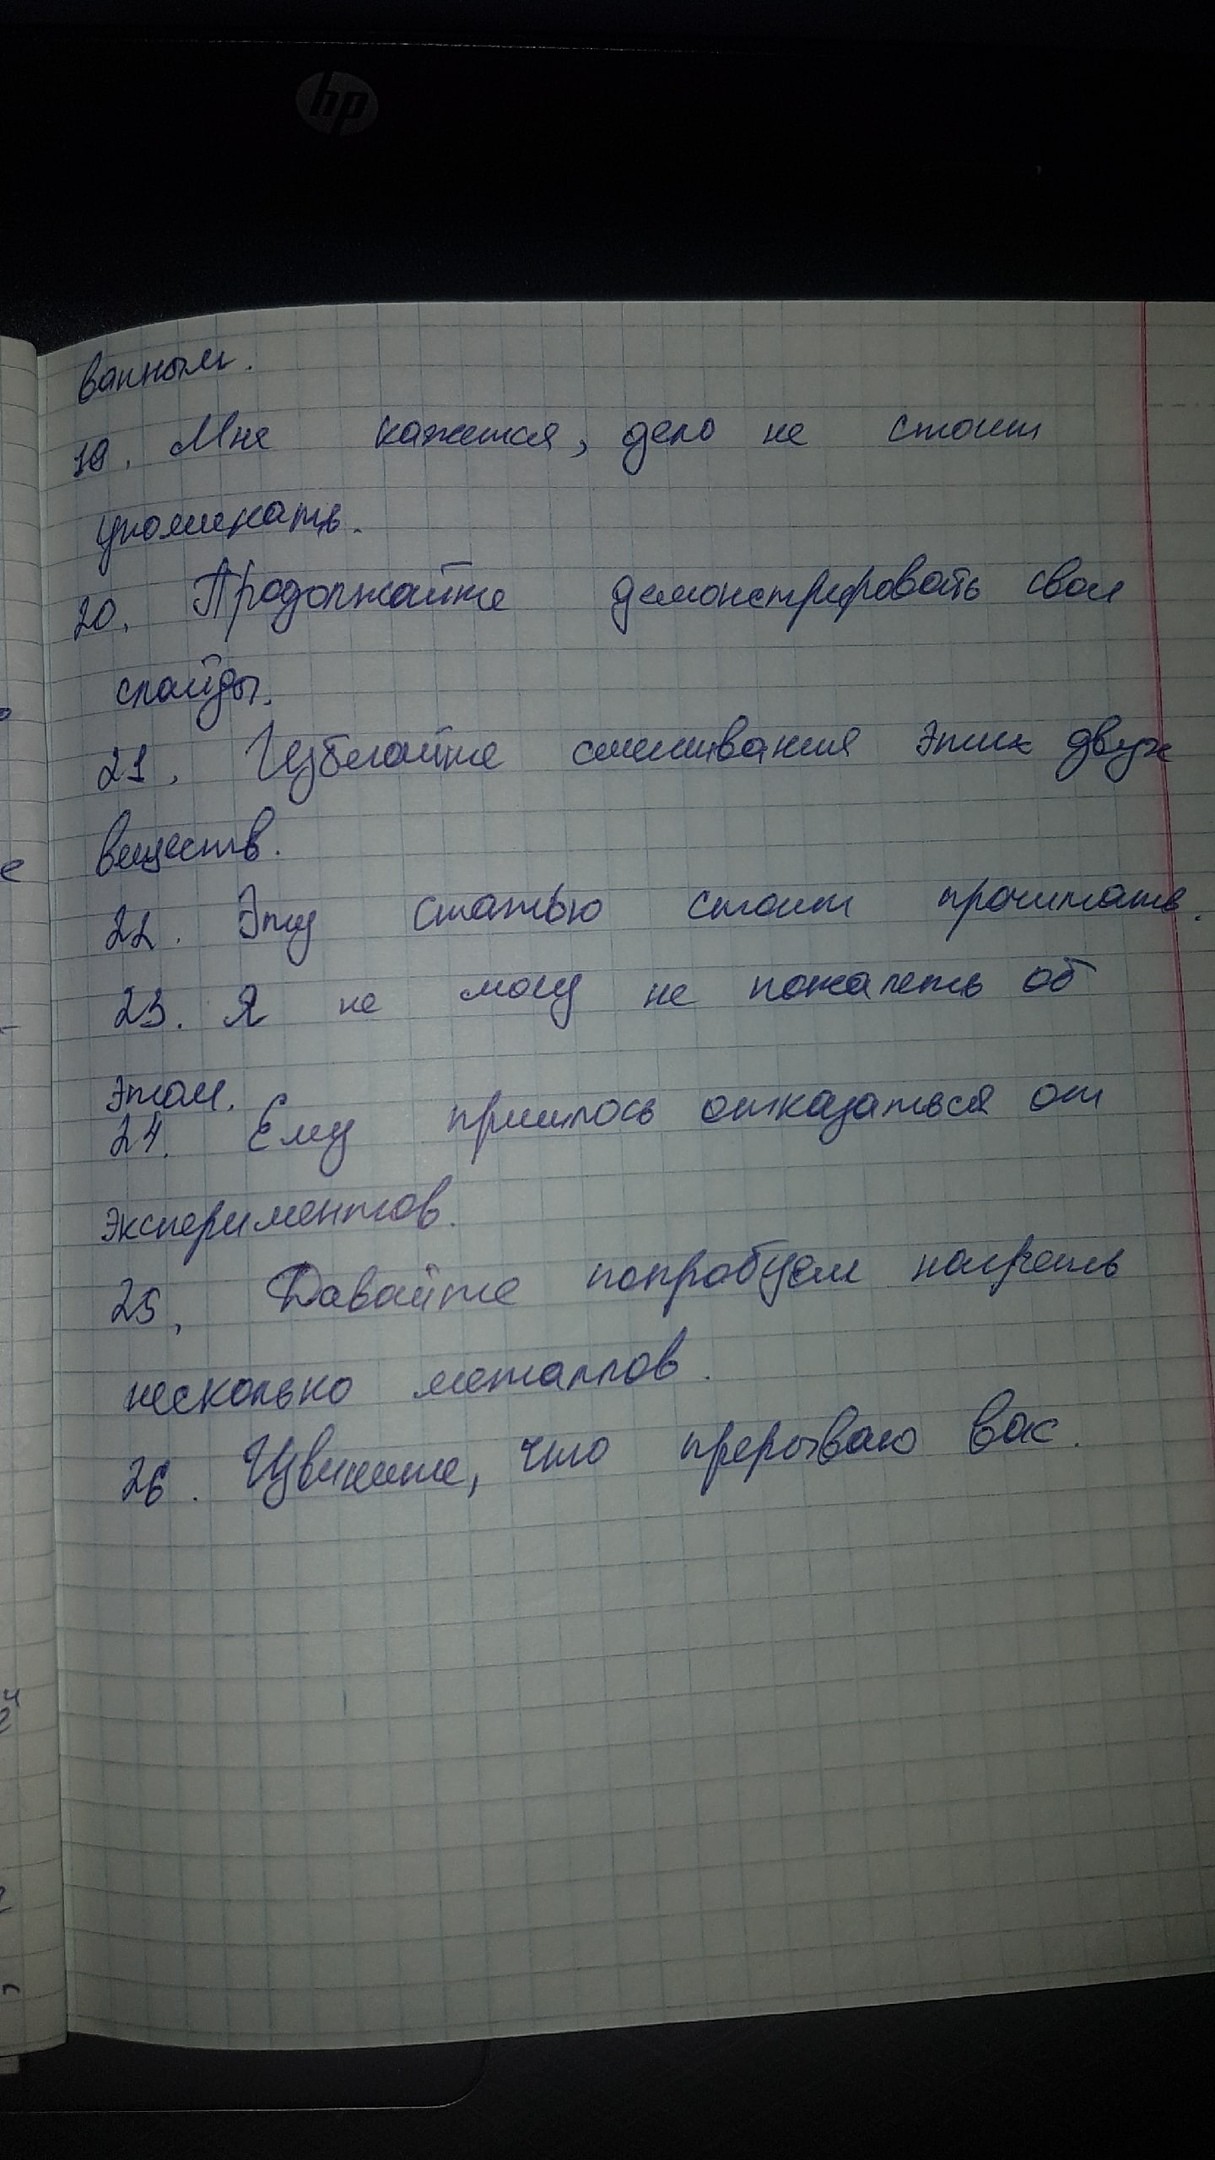 hp
ванным.
19. Мне кажется, дело не стоит
упоминать.
20. Продолжайте демонстрировать свои
слайды.
21. Избегайте смешивания этих двух
веществ.
22. Эту статью стоит прочитать.
23. Я не могу не пожалеть об
этом.
24. Ему пришлось отказаться от
экспериментов.
25. Давайте попробуем нагреть
несколько металлов.
26. Извините, что прерываю вас.